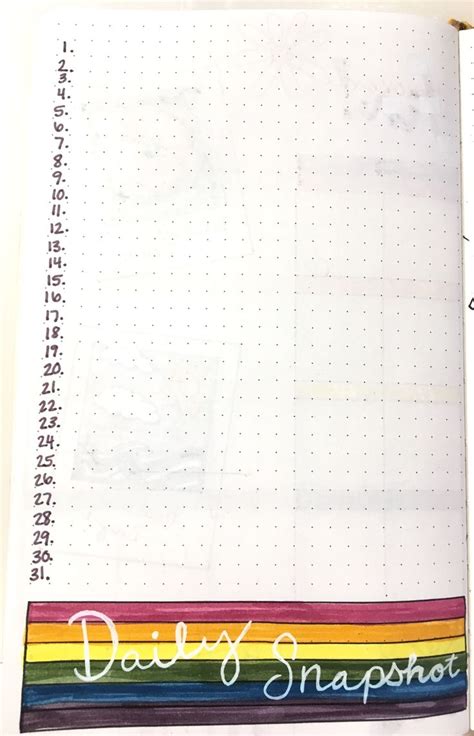 1.
2.
3.
4.
5.
6.
7.
8.
9.
10.
11.
12.
13.
14.
15.
16.
17.
18.
19.
20.
21.
22.
23.
24.
25.
26.
27.
28.
29.
30.
31.
Daily
Snapshot